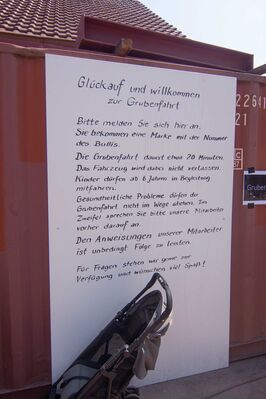 Glückauf und willkommen
zur Grubenfahrt
Bitte melden Sie sich hier an.
Sie bekommen eine Marke mit der Nummer
des Bullis.
Die Grubenfahrt dauert etwa 70 Minuten.
Das Fahrzeug wird dabei nicht verlassen.
Kinder dürfen ab 6 Jahren in Begleitung
mitfahren.
Gesundheitliche Probleme dürfen der
Grubenfahrt nicht im Wege stehen. Im
Zweifel sprechen Sie bitte unsere Mitarbeiter
vorher darauf an.
Den Anweisungen unserer Mitarbeiter
ist unbedingt Folge zu leisten.
Für Fragen stehen wir gerne zur
Verfügung und wünschen viel Spaß!
21